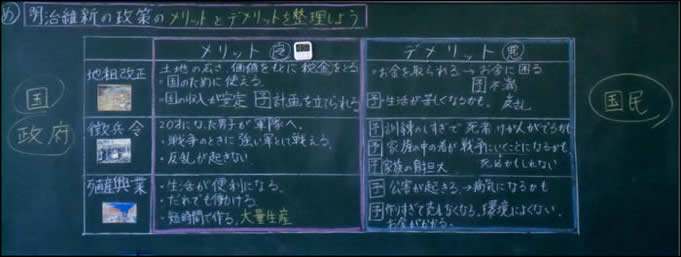 め 明治維新の政策のメリットとデメリットを整理しよう
メリット
デメリット 悪
国
政府
国民
地租改正
土地の広さ、価値をもとに税金をとる
・国のために使える。
・国の収入が安定 予 計画を立てられる
・お金を取られる→お金に困る
予 不満
予 生活が苦しくなるかも。反乱
徴兵令
20才になった男子が軍隊へ
・戦争のときに強い軍として戦える。
・反乱が起きない
予 訓練のしすぎで死者けが人がでるかも
予 家族の中の者が戦争にいくことになるかも
死ぬかもしれない
予 家族の負担大
殖産興業
・生活が便利になる。
・だれでも働ける。
・短時間で作る。大量生産
予 公害が起きる。→病気になるかも
予 作りすぎて売れなくなる。環境によくない。
お金がかかる。